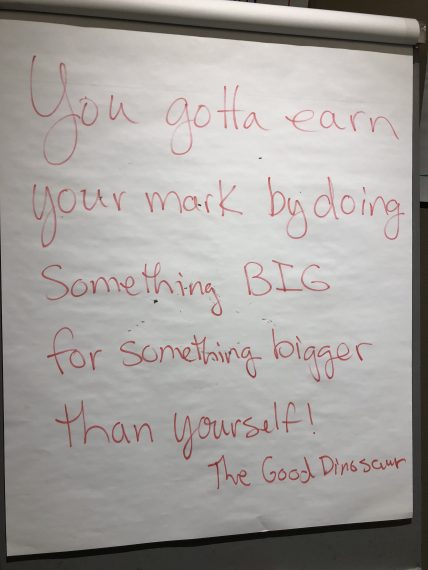 You gotta earn
your mark by doing
Something BIG
for something bigger
than yourself!
The Good Dinosaur